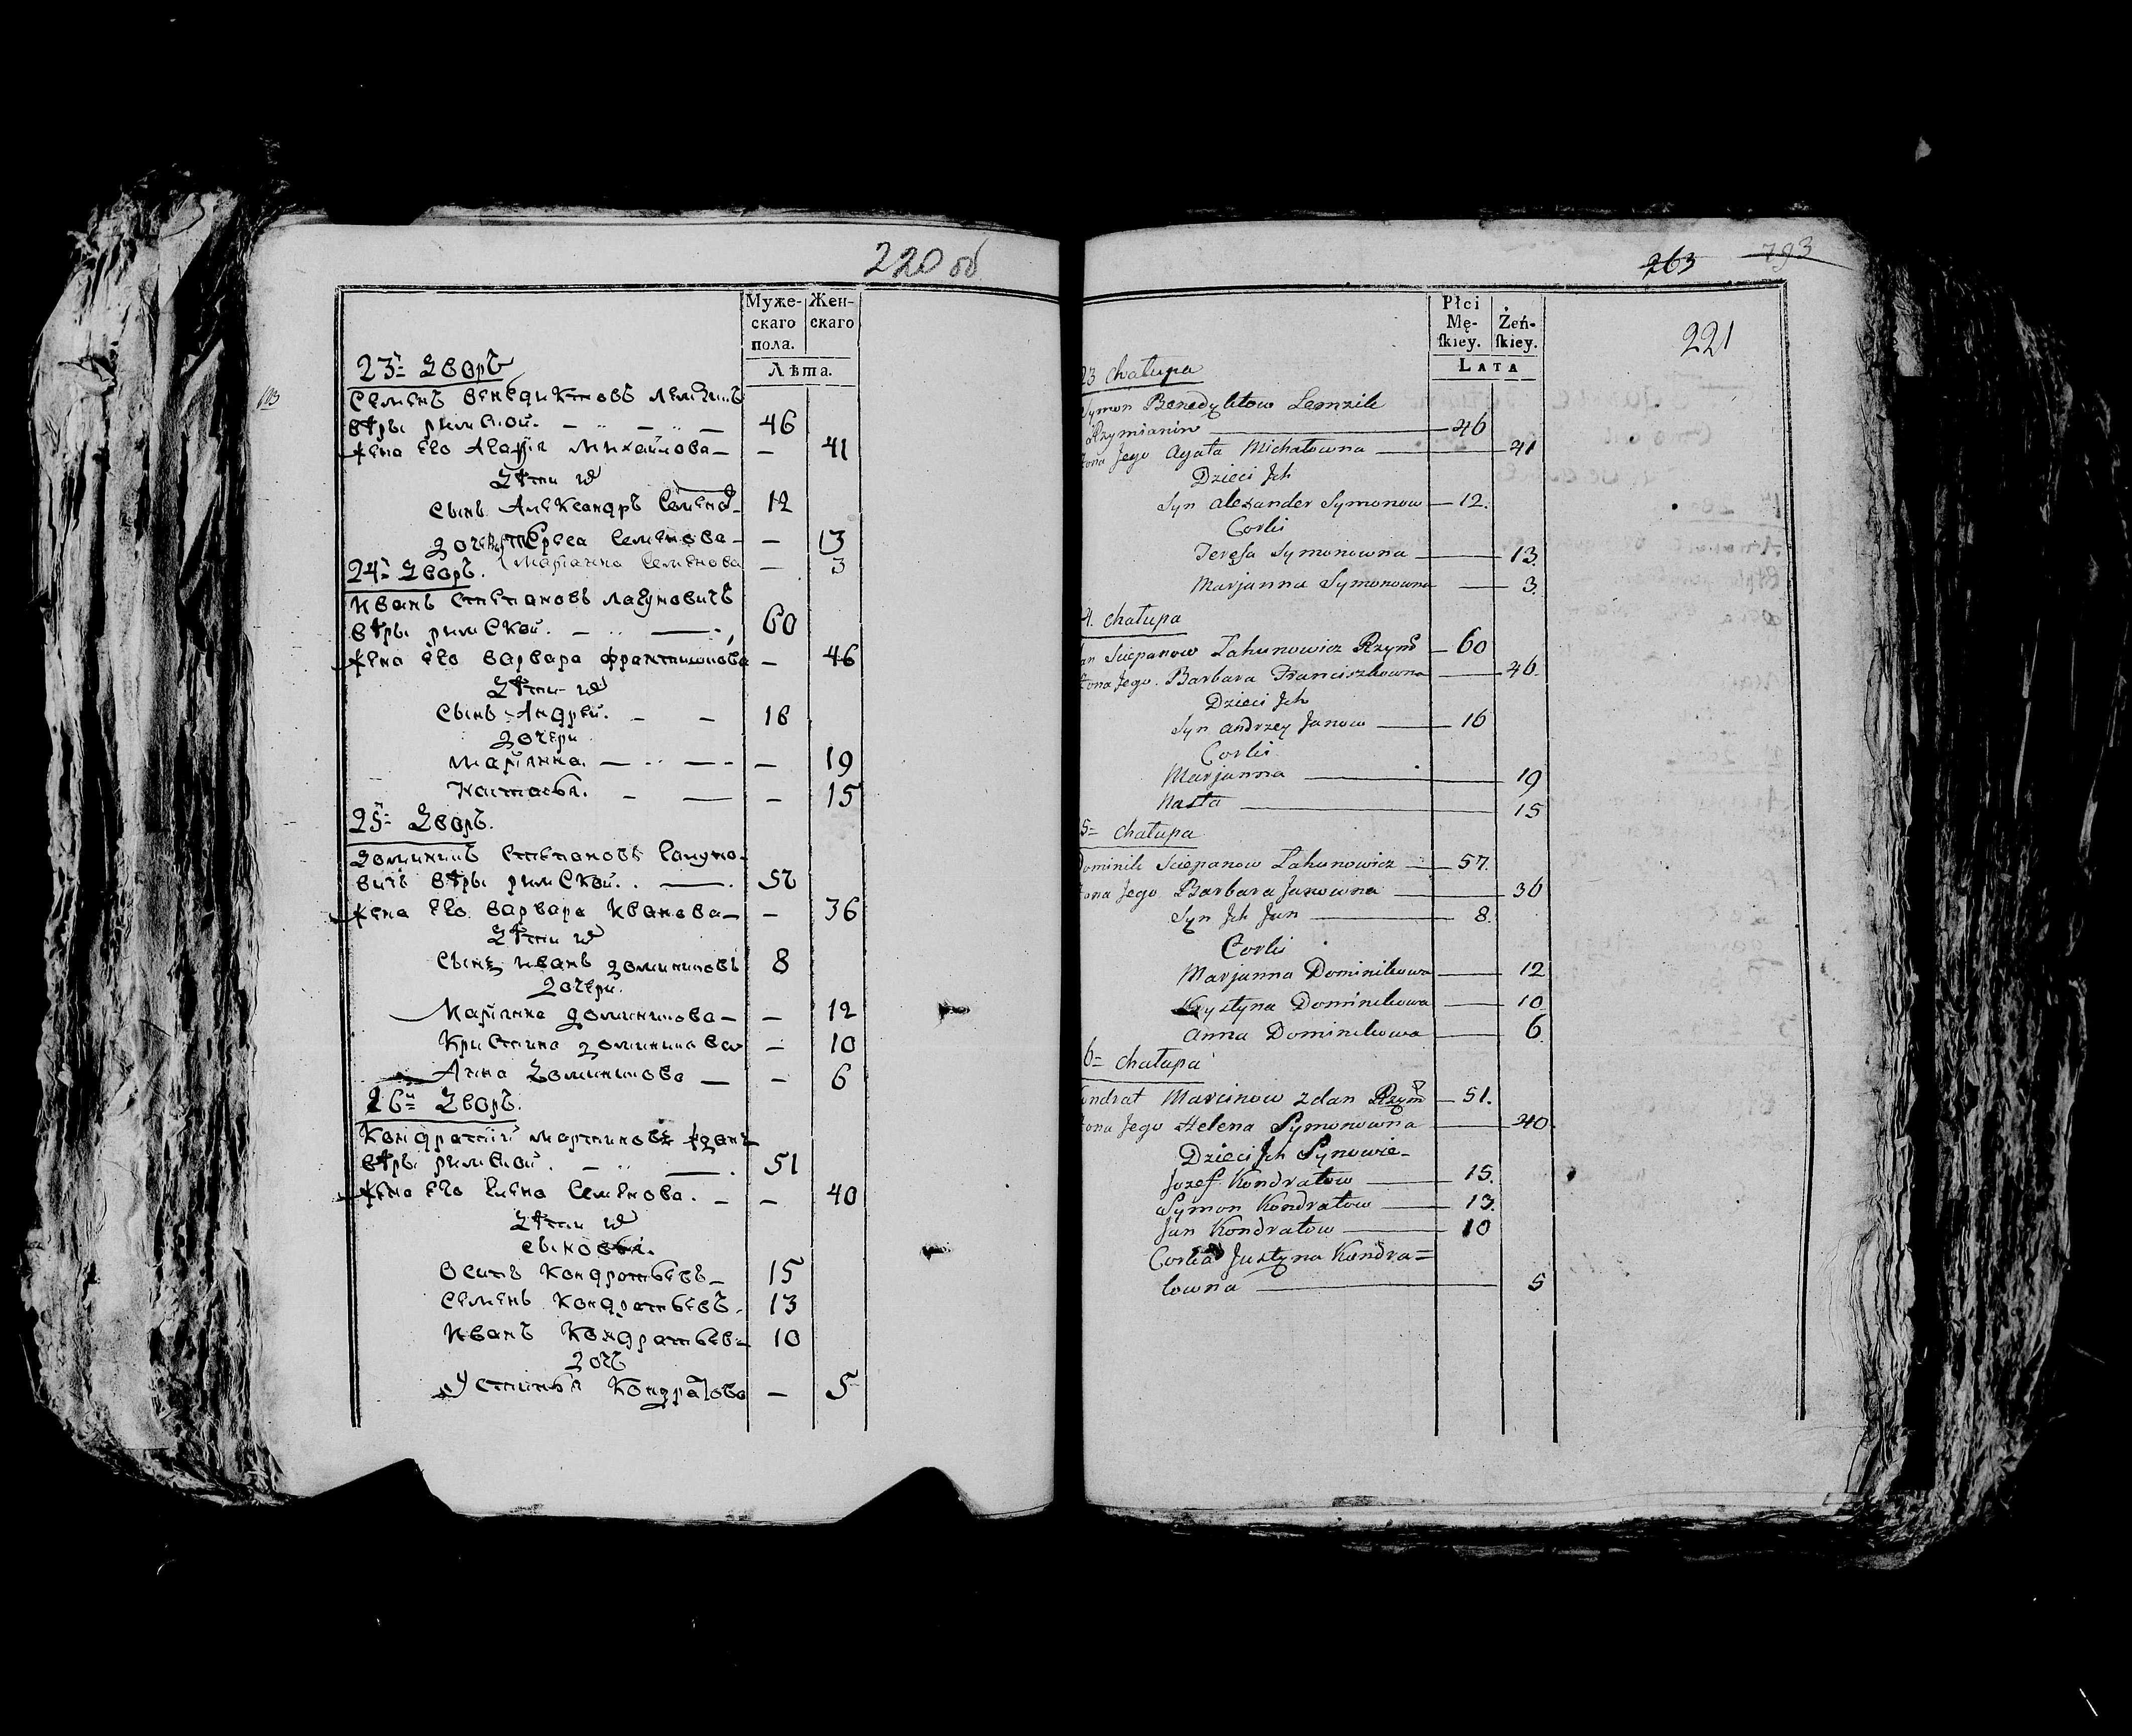 220 об
Муже-
скаго
пола.
Жен-
скаго
Лѣта.
23й Дворъ
Семенъ Венедиктовъ Лемзикъ
вѣры римской. 46
жена его Агафія Михайлова 41
Дѣти их
Сынъ Александръ Семенов 12
дочери Тереса Семенова 13
Маріанна Семенова 3
24й Дворъ.
Иванъ Степановъ Лагуновичъ
вѣры римской. 60
жена его Варвара Францишкова 46
Дѣти их
Сынъ Андрей. 16
дочери
Маріянна. 19
Настасья. 15
25й Дворъ.
Доминикъ Степановъ
вичъ вѣры римской. 57
жена его Варвара Иванова 36
Дѣти их
Сынъ Иванъ Доминиковъ 8
Дочери.
Маріянна Доминикова 12
Кристина Доминикова 10
Анна Доминикова 6
26й Дворъ.
Кондратій Мартиновъ Жданъ
вѣры римской. 51
жена его Елена Семенова. 40
Дѣти их
сыновья.
Осипъ Кондратьевъ 15
Семенъ Кондратьевъ. 13
Иванъ Кондратьевъ 10
дочь
Устинья Кондратова 5
263 793
221
Płci
Mę-
skiey.
Żeń-
skiey.
LATA
23 chałupa
Symon Benedyktow Lemzik
Rzymianin 46
żona Jego Agata Michałowna 41
Dzieci Jch
Syn Alexander Symonow 12.
Corki
Teresa Symonowna 13.
Marjanna Symonowna 3.
4. chałupa
an Sciepanow Lahunowicz Rzym 60
żona Jego. Barbara Franciszkowna 46.
Dzieci Jch
Syn Andrzey Janow 16
Corki
Marjanna 19
Nasta 15
5 chałupa
Dominik Sciepanow Lahunowicz 57.
żona Jego Barbara Janowna 36
Syn Jch Jan 8.
Corki
Marjanna Dominikowa 12
Krystyna Dominikowa 10
Anna Dominikowa 6.
6 chałupa
ondrat Marcinow Zdan Rzym 51.
żona Jego Helena Symonowna 40
Dzieci Jch Synowie
Jozef Kondratow 15.
Symon Kondratow 13.
Jan Kondratow 10
Corka Justyna Kondra=
towna 5